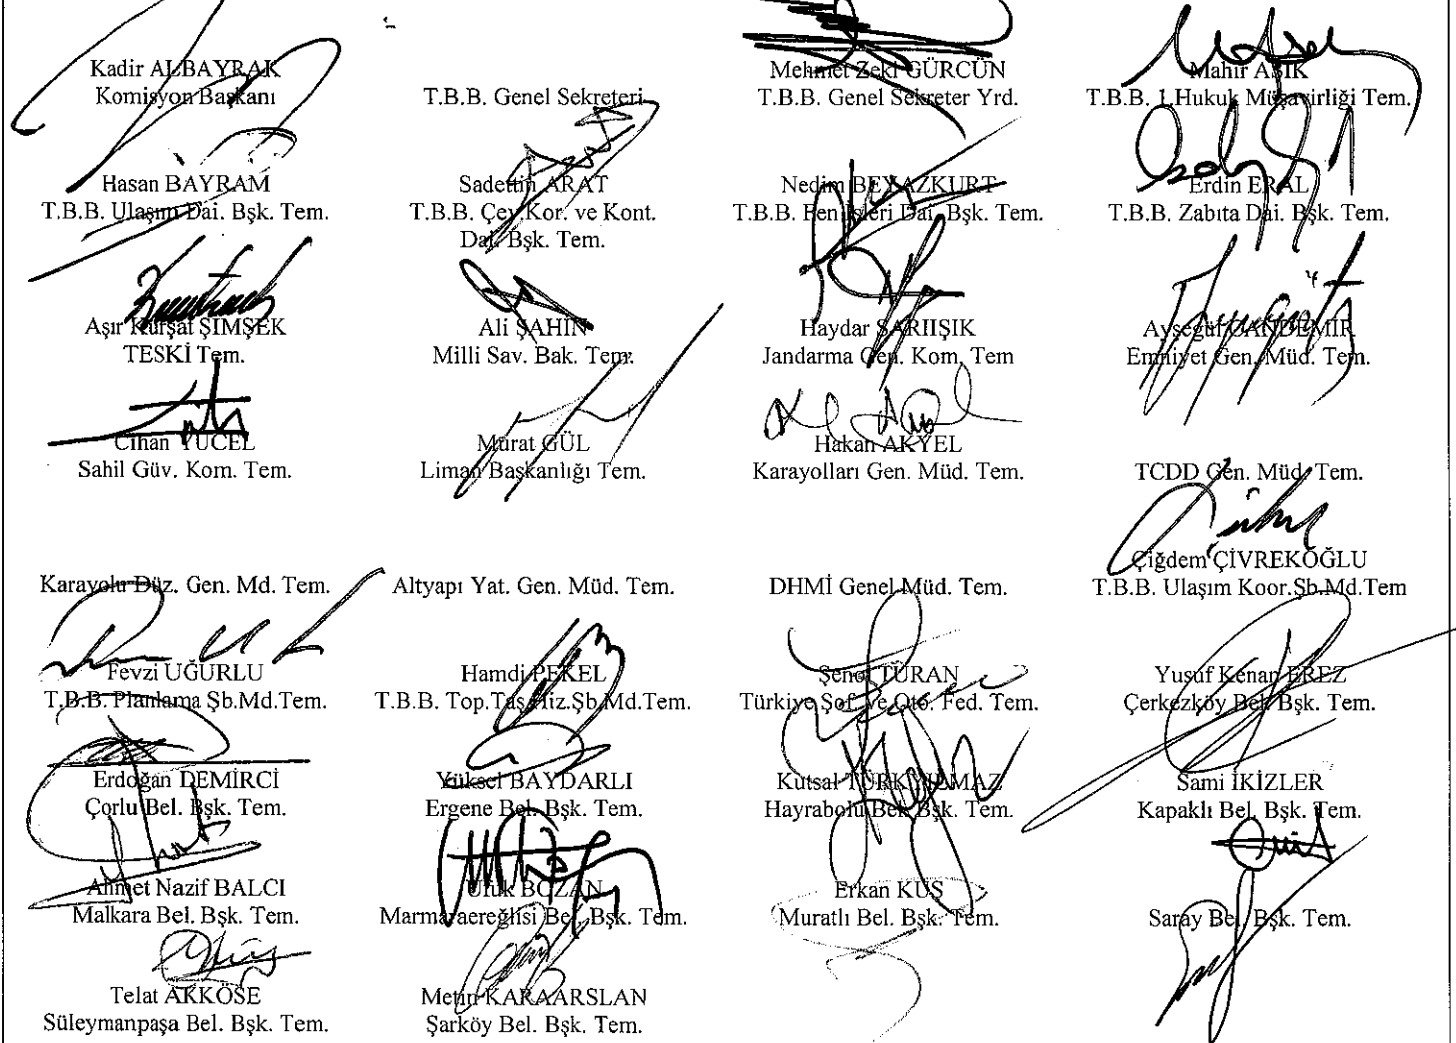 Kadir ALBAYRAK
Komisyon Başkanı
T.B.B. Genel Sekreteri
Mehmet Zeki GÜRCÜN
T.B.B. Genel Sekreter Yrd.
Mahir AŞIK
T.B.B. 1.Hukuk Müşavirliği Tem.
Hasan BAYRAM
T.B.B. Ulaşım Dai. Bşk. Tem.
Sadettin ARAT
T.B.B. Çev.Kor. ve Kont.
Dai. Bşk. Tem.
Nedim BEYAZKURT
T.B.B. Fen İşleri Dai. Bşk. Tem.
Erdin ERAL
T.B.B. Zabıta Dai. Bşk. Tem.
Aşır Kürşat ŞİMŞEK
TESKİ Tem.
Ali ŞAHİN
Milli Sav. Bak. Tem.
Haydar SARIIŞIK
Jandarma Gen. Kom. Tem
Ayşegül CANDEMİR
Emniyet Gen. Müd. Tem.
Cihan YÜCEL
Sahil Güv. Kom. Tem.
Murat GÜL
Liman Başkanlığı Tem.
Hakan AKYEL
Karayolları Gen. Müd. Tem.
TCDD Gen. Müd. Tem.
Karayolu Düz. Gen. Md. Tem.
Altyapı Yat. Gen. Müd. Tem.
DHMİ Genel Müd. Tem.
Çiğdem ÇİVREKOĞLU
T.B.B. Ulaşım Koor.Şb.Md.Tem
Fevzi UĞURLU
T.B.B. Planlama Şb.Md.Tem.
Hamdi PEKEL
T.B.B. Top.Taş.Hiz.Şb.Md.Tem.
Şenol TURAN
Türkiye Şof. ve Oto. Fed. Tem.
Yusuf Kenan EREZ
Çerkezköy Bel. Bşk. Tem.
Erdoğan DEMİRCİ
Çorlu Bel. Bşk. Tem.
Yüksel BAYDARLI
Ergene Bel. Bşk. Tem.
Kutsal TÜRKYILMAZ
Hayrabolu Bel. Bşk. Tem.
Sami İKİZLER
Kapaklı Bel. Bşk. Tem.
Ahmet Nazif BALCI
Malkara Bel. Bşk. Tem.
Ufuk BOZAN
Marmaraereğlisi Bel. Bşk. Tem.
Erkan KUŞ
Muratlı Bel. Bşk. Tem.
Saray Bel. Bşk. Tem.
Telat AKKÖSE
Süleymanpaşa Bel. Bşk. Tem.
Metin KARAARSLAN
Şarköy Bel. Bşk. Tem.